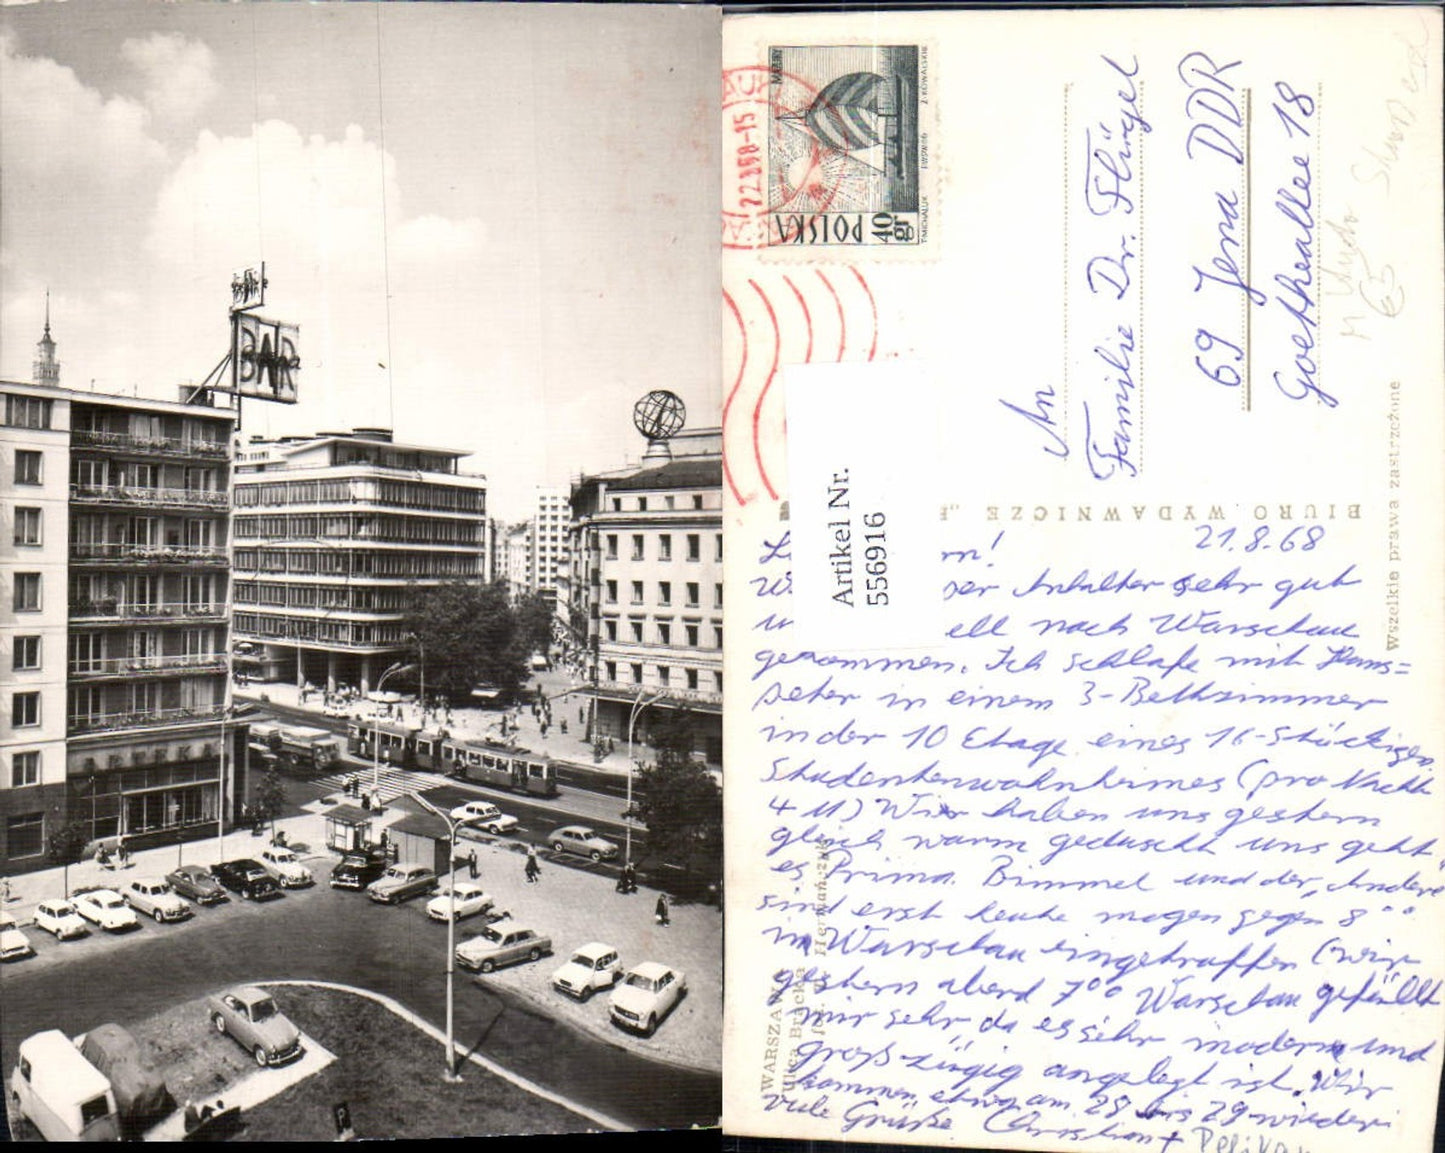 BAR
APTEKA
MAZURY
Z. KOWALSKI
T. MICHALUK
POLSKA
40
gr
22.8.68-15
An
Familie Dr. Flügel
69 Jena DDR
Goetheallee 18
Artikel Nr.
555916
BIURO WYDAWNICZE „
Wszelkie prawa zastrzeżone
WARSZAWA
Ulica Bracka
fot. Hermańczyk
21.8.68
L m!
per Anhalter sehr gut
ell nach Warschau
gekommen. Ich schlafe mit Hans=
peter in einem 3-Bettzimmer
in der 10 Etage eines 16-Stöckigen
Studentenwohnheimes (pro Nacht
4 M) Wir haben uns gestern
gleich warm geduscht uns geht
es Prima. Bimmel und der Andere
sind erst heute morgen gegen 8⁰⁰
in Warschau eingetroffen (wir
gestern abend 7⁰⁰ Warschau gefällt
mir sehr, da es sehr modern und
groß-zügig angelegt ist. Wir
kommen etwa am 28 bis 29 wieder.
Viele Grüße Christian +